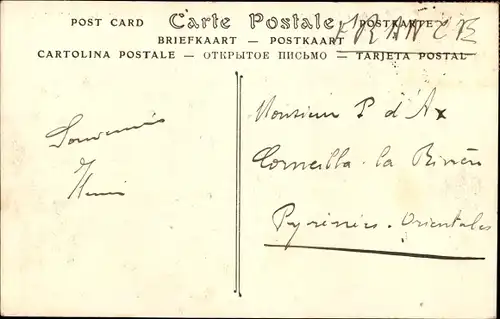 POST CARD Carte Postale POSTKARTE
FRANCE
BRIEFKAART — POSTKAART
CARTOLINA POSTALE — ОТКРЫТОЕ ПИСЬМО — TARJETA POSTAL
Souvenirs
Henri
Monsieur P d'Ax
Corneilla-la Rivière
Pyrénées-Orientales